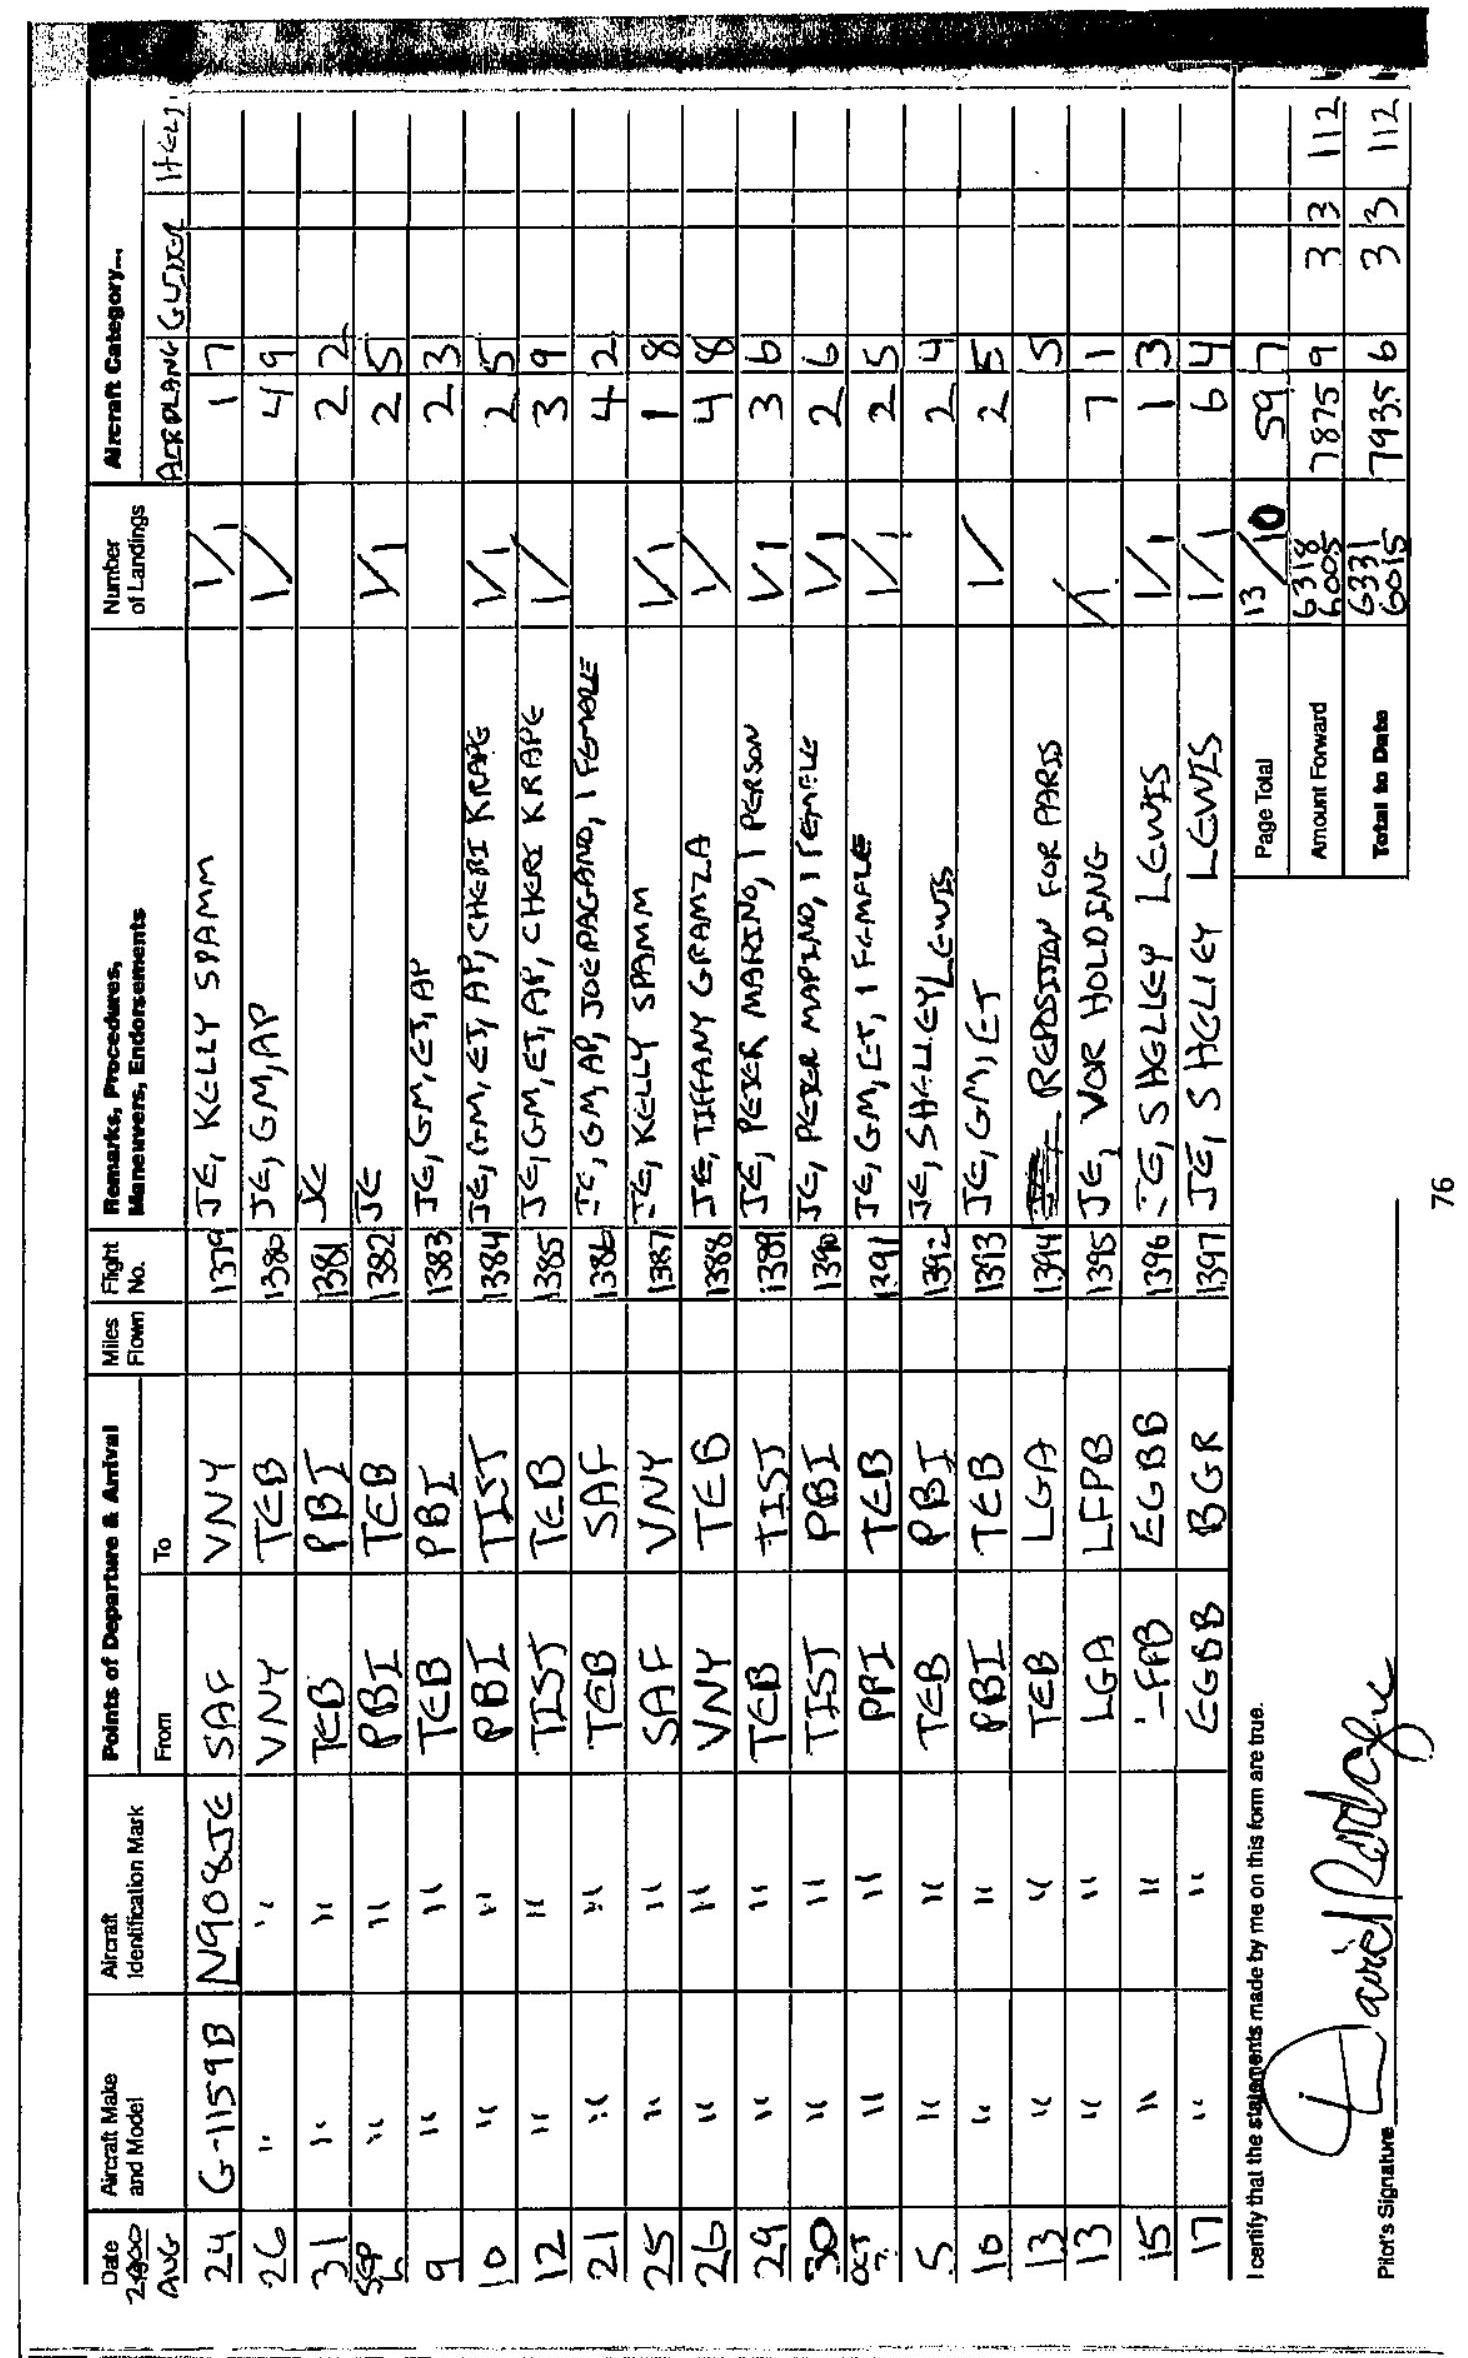 Date Aircraft Make and Model Aircraft Identification Mark Points of Departure & Arrival From To Miles Flown Flight No. Remarks, Procedures, Maneuvers, Endorsements Number of Landings Aircraft Category...
AUG AERPLANE GLIDER HELI.
24 G-1159B N908JE SAF VNY 1379 JE, KELLY SPAMM 1/1 1 7
26 " " VNY TEB 1380 JE, GM, AP 1/ 4 9
31 " " TEB PBI 1381 JE 2 2
SEP " " PBI TEB 1382 JE 1/1 2 5
9 " " TEB PBI 1383 JE, GM, ET, AP 2 3
10 " " PBI TIST 1384 JE, GM, ET, AP, CHERI KRAPE 1/1 2 5
12 " " TIST TEB 1385 JE, GM, ET, AP, CHERI KRAPE 1/ 3 9
21 " " TEB SAF 1386 JE, GM, AP, JOE PAGANO, 1 FEMALE 4 2
25 " " SAF VNY 1387 JE, KELLY SPAMM 1/1 1 8
26 " " VNY TEB 1388 JE, TIFFANY GRAMZA 1/ 4 8
29 " " TEB TIST 1389 JE, PETER MARINO, 1 PERSON 1/1 3 6
30 " " TIST PBI 1390 JE, PETER MARINO, 1 FEMALE 1/1 2 6
OCT " " PBI TEB 1391 JE, GM, ET, 1 FEMALE 1/1 2 5
5 " " TEB PBI 1392 JE, SHELLEY LEWIS 2 4
10 " " PBI TEB 1393 JE, GM, ET 1/ 2 5
13 " " TEB LGA 1394 REPOSITION FOR PARIS 5
13 " " LGA LFPB 1395 JE, VOR HOLDING 7 1
15 " " LFPB EGBB 1396 JE, SHELLEY LEWIS 1/1 1 3
17 " " EGBB BGR 1397 JE, SHELLEY LEWIS 1/1 6 4
I certify that the statements made by me on this form are true. Page Total 13/10 59 7
Amount Forward 6318 6005 7875 9 3 3 112
Pilot's Signature Total to Date 6331 6015 7935 6 3 3 112
76